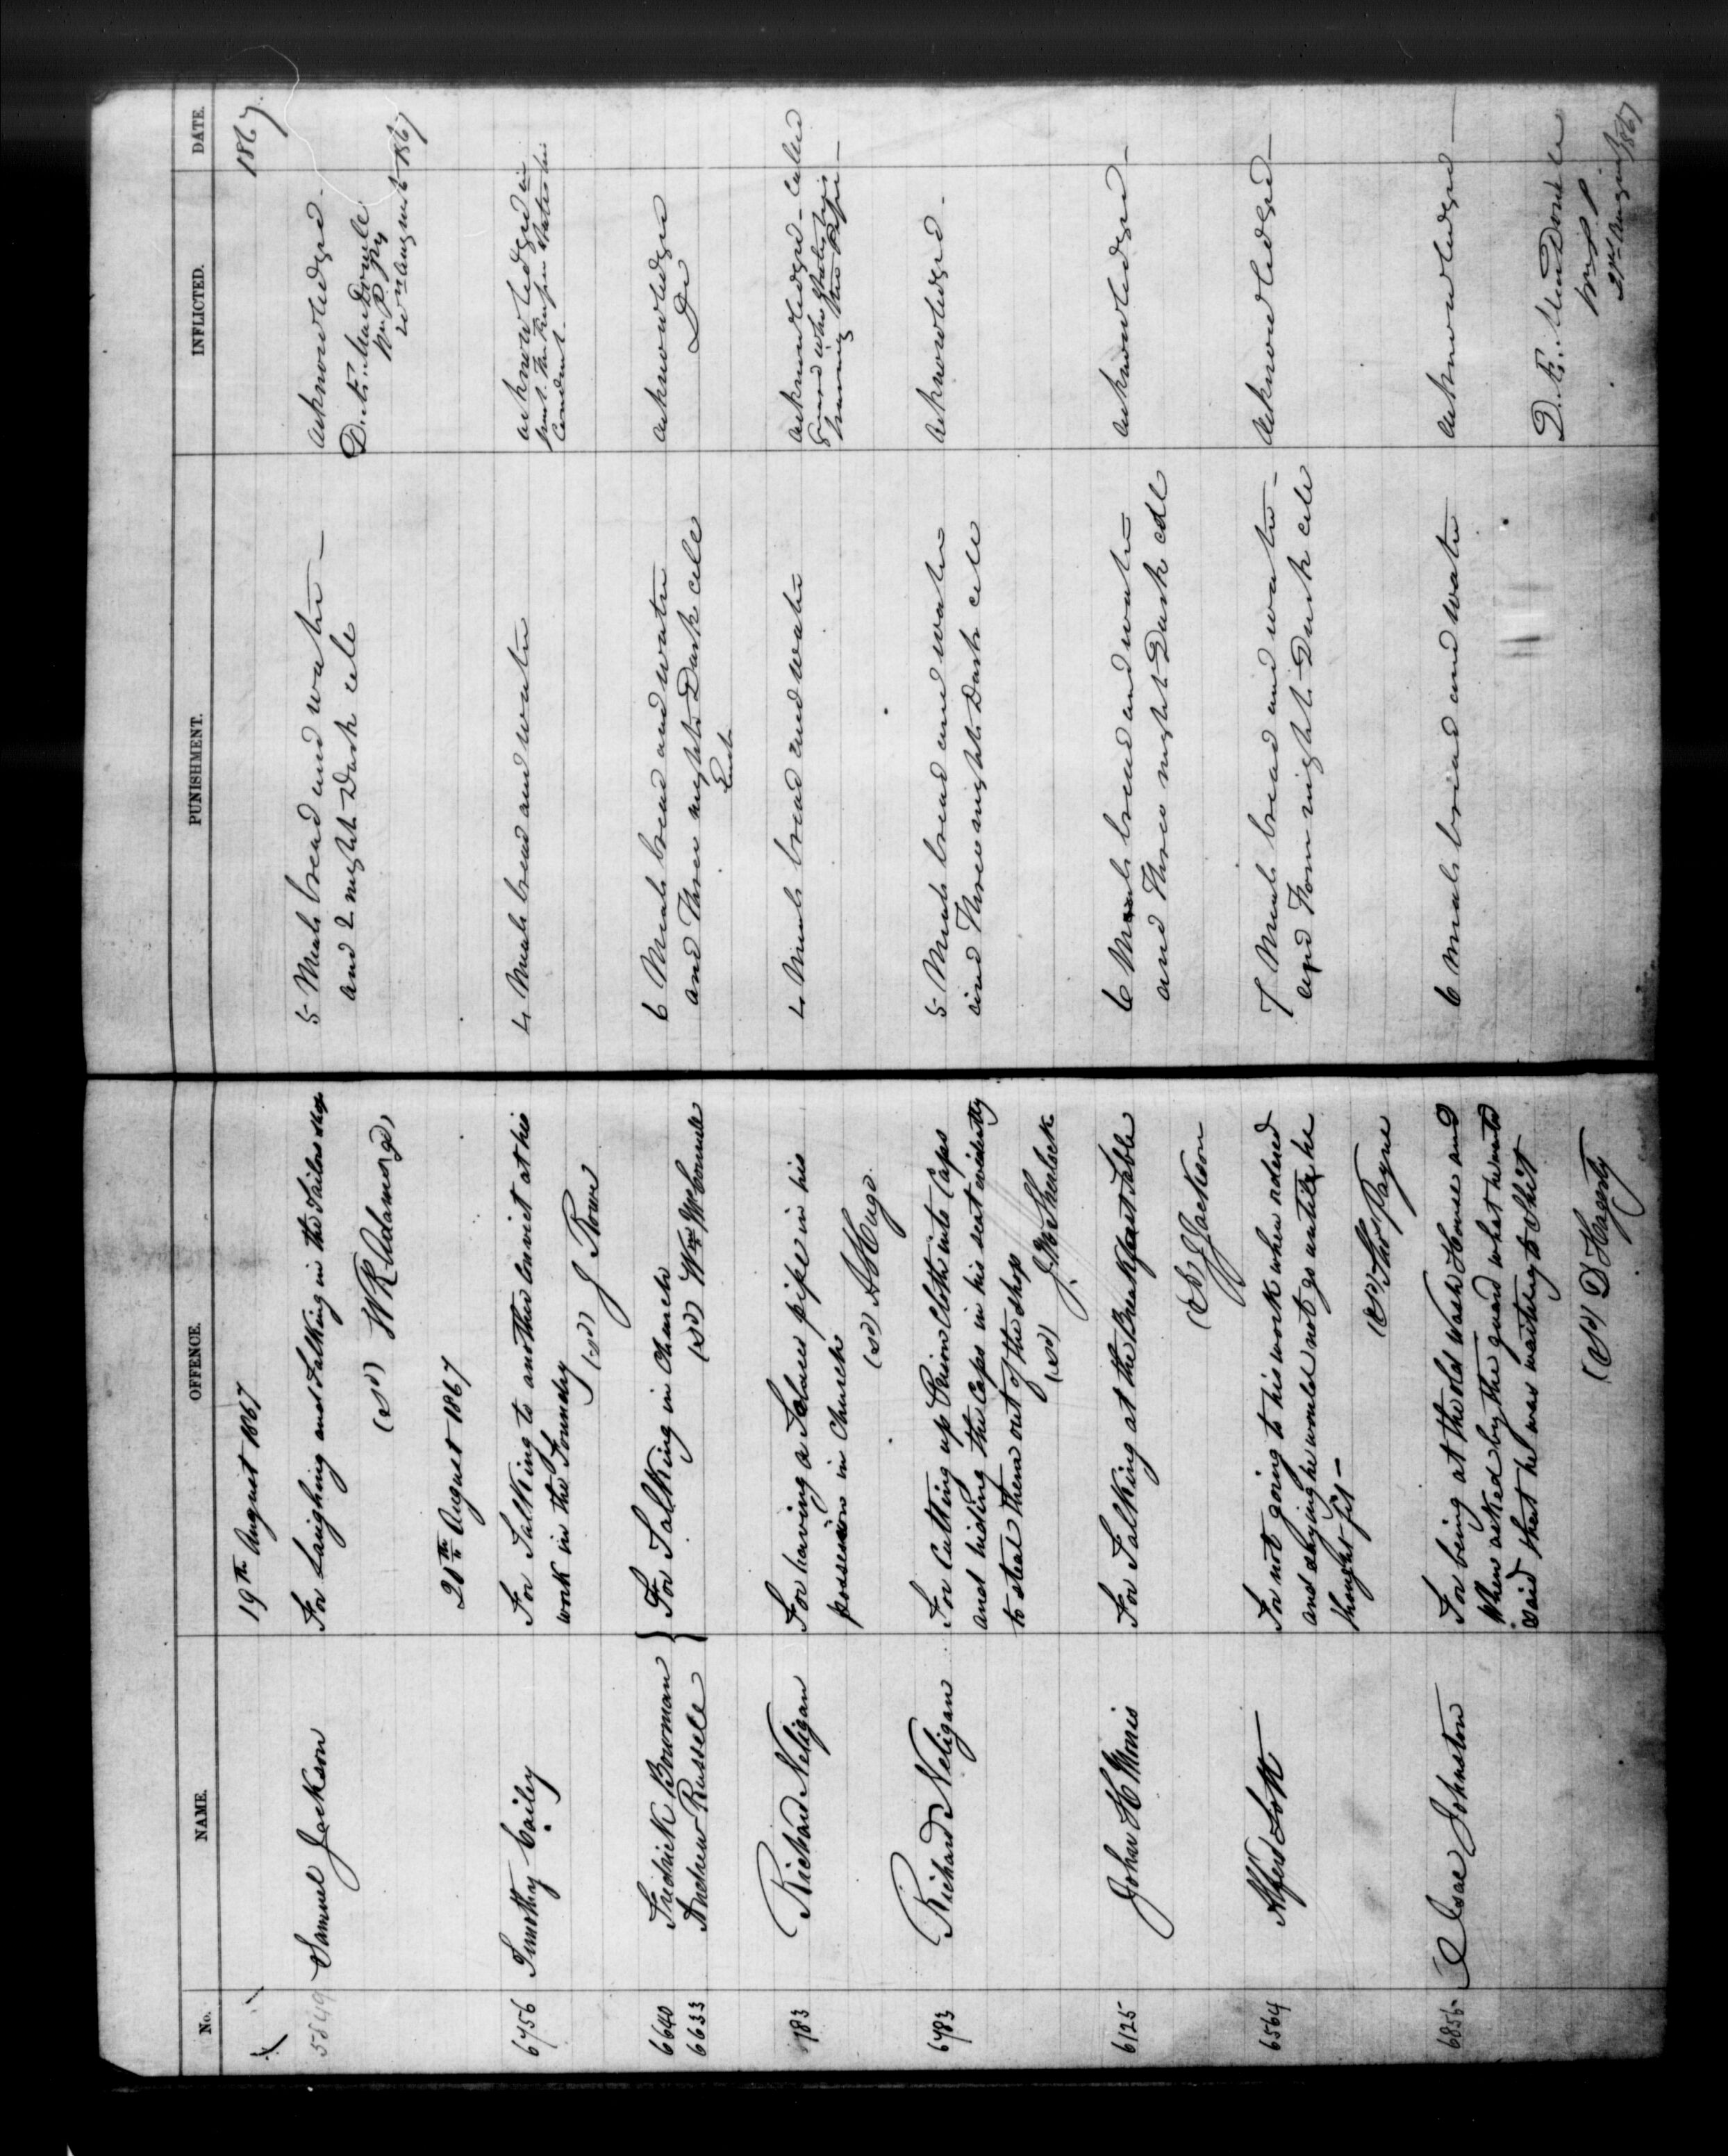 No. NAME. OFFENCE. PUNISHMENT. INFLICTED. DATE.
1867
19th August 1867
5549 Samuel Jackson
For Laughing and Talking in the Tailors Shop
(Sd) W R Adams
5 Meals bread and water –
and 2 nights Dark cell
acknowledged –
20th August 1867
20th August 1867
6756 Timothy Cailey
For Talking to another Convict at his
work in the Foundry
(Sd) J Rowe
4 Meals bread and water
acknowledged in
Conduct.
6640 Fredrick Bowman
6633 Andrew Russell
} For Talking in Church
(Sd) Wm McConnell
6 Meals bread and water
and Three nights Dark cell
Each
acknowledged
Do
783 Richard Neligan
For having a Tobacco pipe in his
possession in Church
(Sd) A Hugo
4 Meals bread and water
acknowledged – Called
Guard who States he is
6783 Richard Neligan
For Cutting up Prison Cloth into Caps
and hiding the Caps in his seat evidently
to steal them out of the shop
(Sd) J McSherlock
5 Meals bread and water
and Three nights Dark cell
acknowledged –
6125 John H Morris
For Talking at the Breakfast Table
(Sd) J Jackson
6 Meals bread and water –
and Three nights Dark cell
acknowledged –
6564 Alfred Lott
For not going to his work when ordered
and saying he would not go until he
thought fit –
(Sd) Thos Payne
7 Meals bread and water –
and Four nights Dark cell
acknowledged –
6856 Isac Johnston
For being at the old Wash House and
When asked by the guard what he wanted
said that he was waiting to Shit
(Sd) D Hagerty
6 meals bread and water
acknowledged –
D. Æ. MacDonell
W.P.P.
August 1867